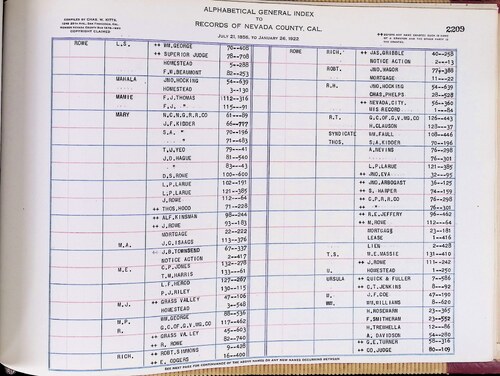 ALPHABETICAL GENERAL INDEX
TO
RECORDS OF NEVADA COUNTY, CAL.
JULY 21, 1856, TO JANUARY 26, 1922
2209
COPYRIGHT CLAIMED
ROWE L.S. ++ WM.GEORGE 70--408
++ SUPERIOR JUDGE 78--708
HOMESTEAD 5--288
F.W.BEAUMONT 82--253
MAHALA JNO.HOCKING 54--639
HOMESTEAD 3--130
MAMIE F.J.THOMAS 112--316
++ F.J. " 115--91
MARY N.C.N.G.R.R.CO 61--89
J.F.KIDDER 66--717
S.A. " 70--196
" 71--483
T.U.YEO 79--41
J.D.HAGUE 81--540
" 83--43
D.S.ROWE 100--600
L.P.LARUE 102--191
L.P.LARUE 121--385
J.ROWE 112--64
++ THOS.HOOD 71--228
++ ALF.KINSMAN 98--244
++ J.ROWE 93--183
MORTGAGE 22--222
M.A. J.C.ISAACS 113--376
++ J.B.TOWNSEND 67--337
NOTICE ACTION 2--417
M.E. C.P.JONES 132--278
T.W.HARRIS 133--61
L.F.HEROD 127--267
P.J.RILEY 130--115
M.J. ++ GRASS VALLEY 47--106
HOMESTEAD 3--548
M.P. WM.GEORGE 88--536
R. G.C.OF.G.V.MG.CO 117--462
++ GRASS VALLEY 45--603
++ R. ROWE 82--740
RICH. ++ ROBT.SIMMONS 9--428
++ E. COGERS 16--400
ROWE RICH. ++ JAS.GRIBBLE 40--258
NOTICE ACTION 2--13
ROBT. JNO.WAGOR 77--388
MORTGAGE 11--22
R.H. JNO.HOCKING 54--639
CHAS.PHELPS 28--528
++ NEVADA.CITY. 56--360
HIS RECORD 1--84
R.T. G.C.OF.G.V.MG.CO 126--443
H.CLAUSON 128--37
SYNDICATE WM.FAULL 108--446
THOS. S.A.KIDDER 70--196
A.NEVING 76--298
" 76--301
L.P.LARUE 121--385
++ JNO.EVA 32--95
++ JNO.ARBOGAST 36--125
++ S. HARPER 74--159
++ C.P.R.R.CO 76--298
++ " 76--301
++ R.E.JEFFERY 96--462
++ M.ROWE 112--64
MORTGAGE 23--181
LEASE 1--416
LIEN 2--428
T.S. M.E.MASSIE 131--410
++ J.ROWE 111--242
U. HOMESTEAD 1--250
URSULA ++ QUICK & FULLER 7--586
++ C.T.JENKINS 8--92
W. J.F.COE 47--190
WM. WM.WILLIAMS 8--620
H.ROSEWARN 23--365
F.SMITHERAM 23--552
H.TREWHELLA 12--86
A.DAVIDSON 54--280
++ G.E.TURNER 58--316
++ CO.JUDGE 80--109
SEE NEXT PAGE FOR CONTINUANCE OF THE ABOVE NAMES OR ANY NEW NAMES OCCURRING BETWEEN